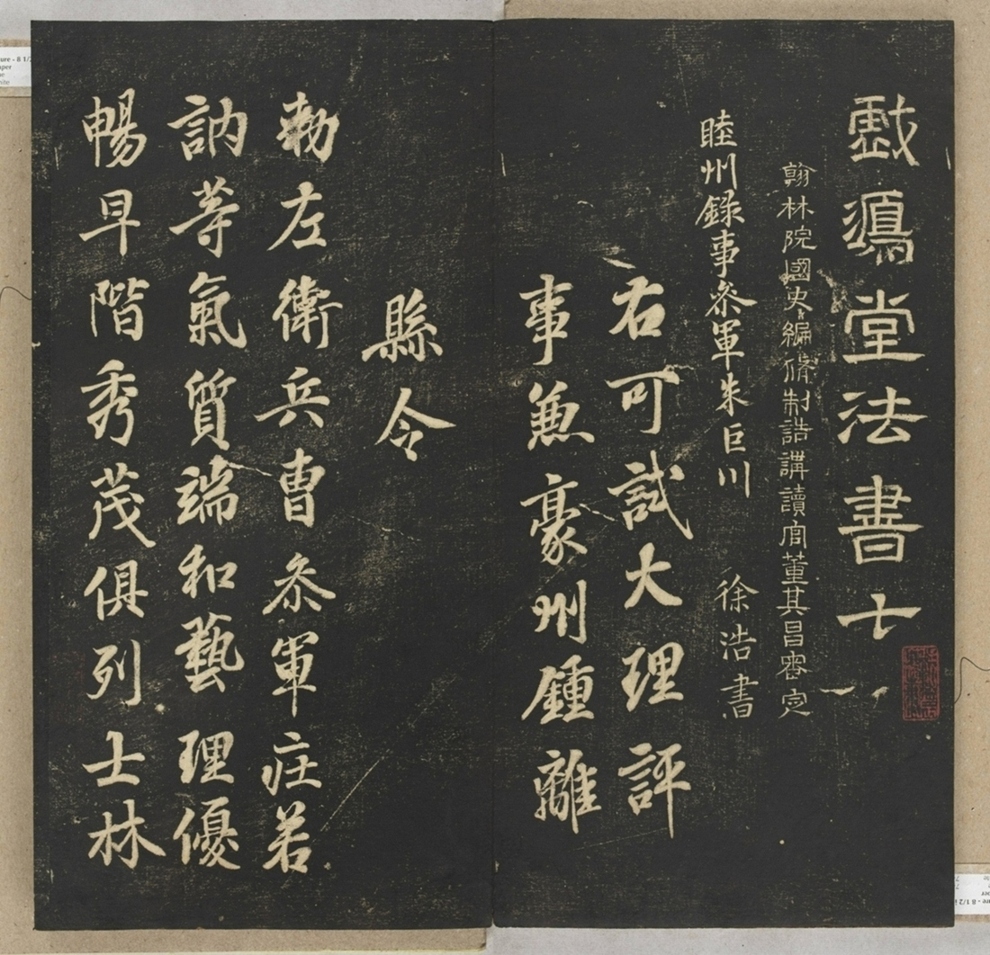 戲鴻堂法書七
翰林院國史編脩制誥講讀官董其昌審定
睦州錄事叅軍朱巨川 徐浩書
右可試大理評
事兼豪州鍾離
縣令
勑左衛兵曹叅軍莊若
訥等氣質端和藝理優
暢早階秀茂俱列士林